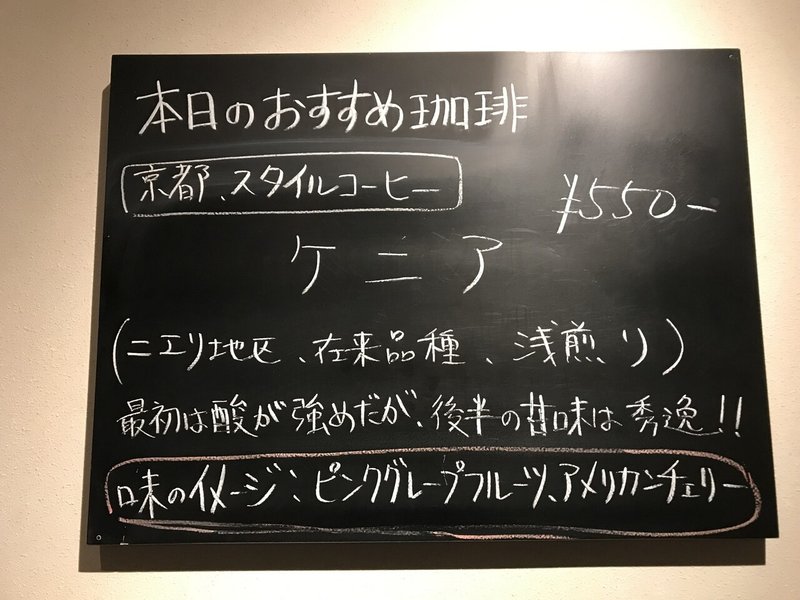 本日のおすすめ珈琲
京都、スタイルコーヒー
¥550-
ケニア
(ニエリ地区、在来品種、浅煎り)
最初は酸が強めだが、後半の甘味は秀逸!!
味のイメージ:ピンクグレープフルーツ、アメリカンチェリー